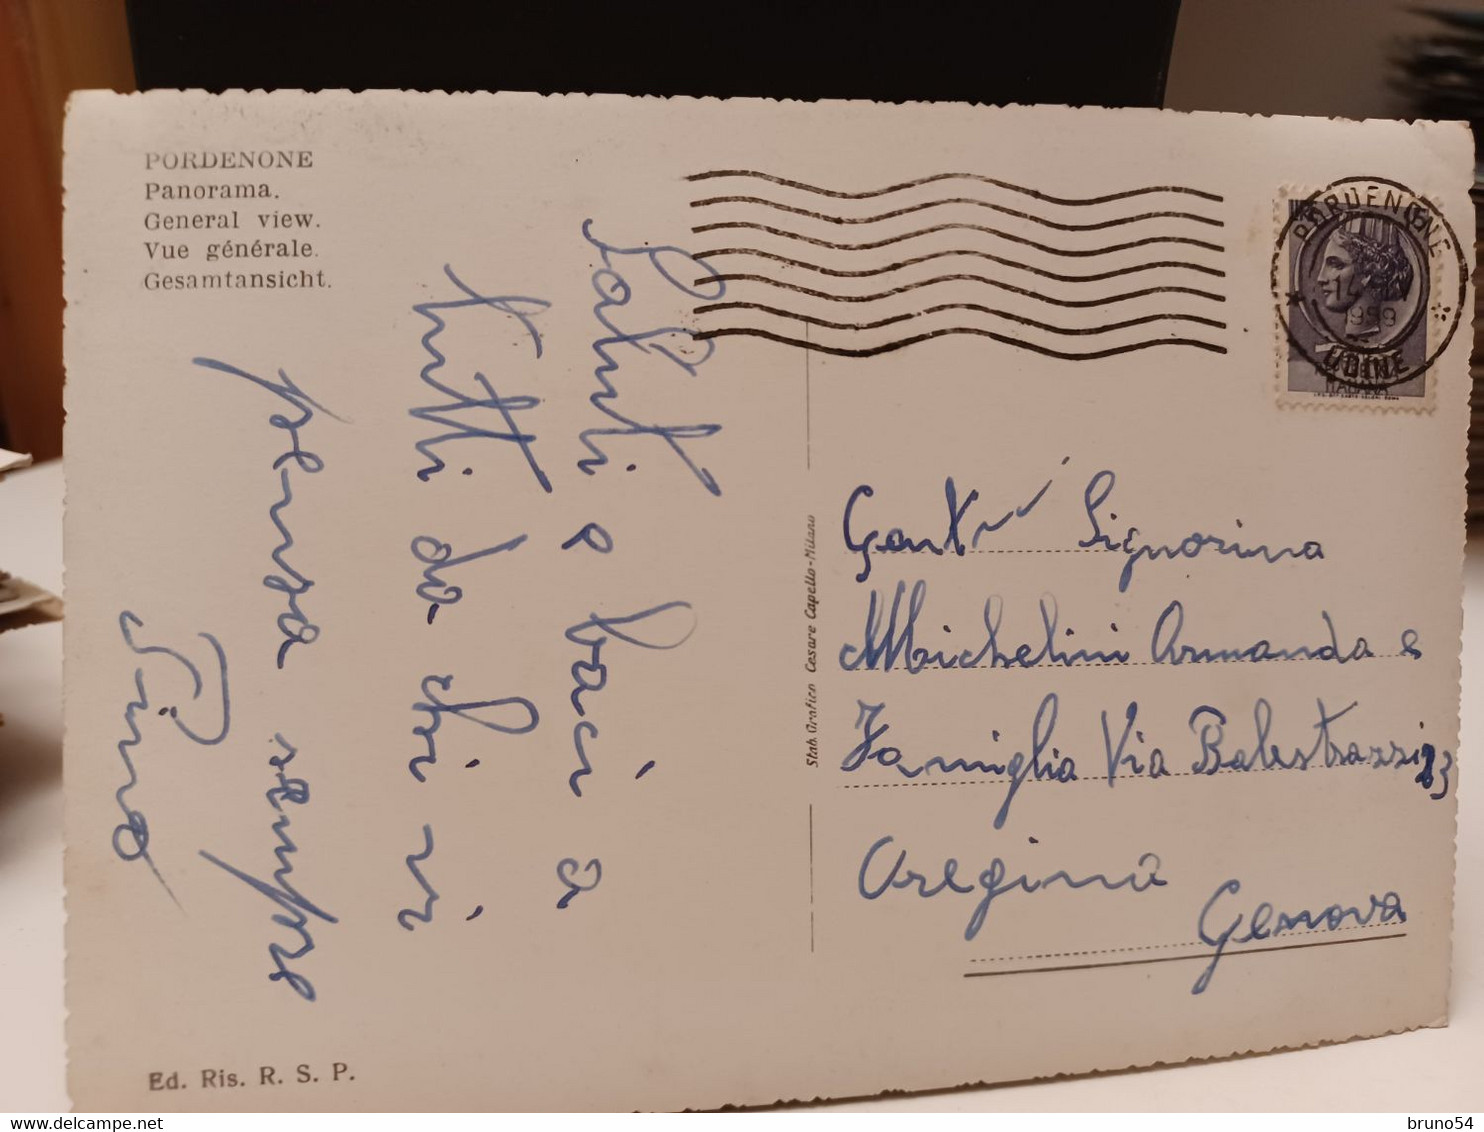 PORDENONE
Panorama.
General view.
Vue générale.
Gesamtansicht.
Saluti e baci a
tutti da chi vi
pensa sempre
Pino
Ed. Ris. R. S. P.
Stab. Grafico Cesare Capello - Milano
PORDENONE
1959
UDINE
ITALIANA
Gent Signorina
Michelini Armanda e
Famiglia Via Balestrazzi 23
Oregina
Genova
bruno54